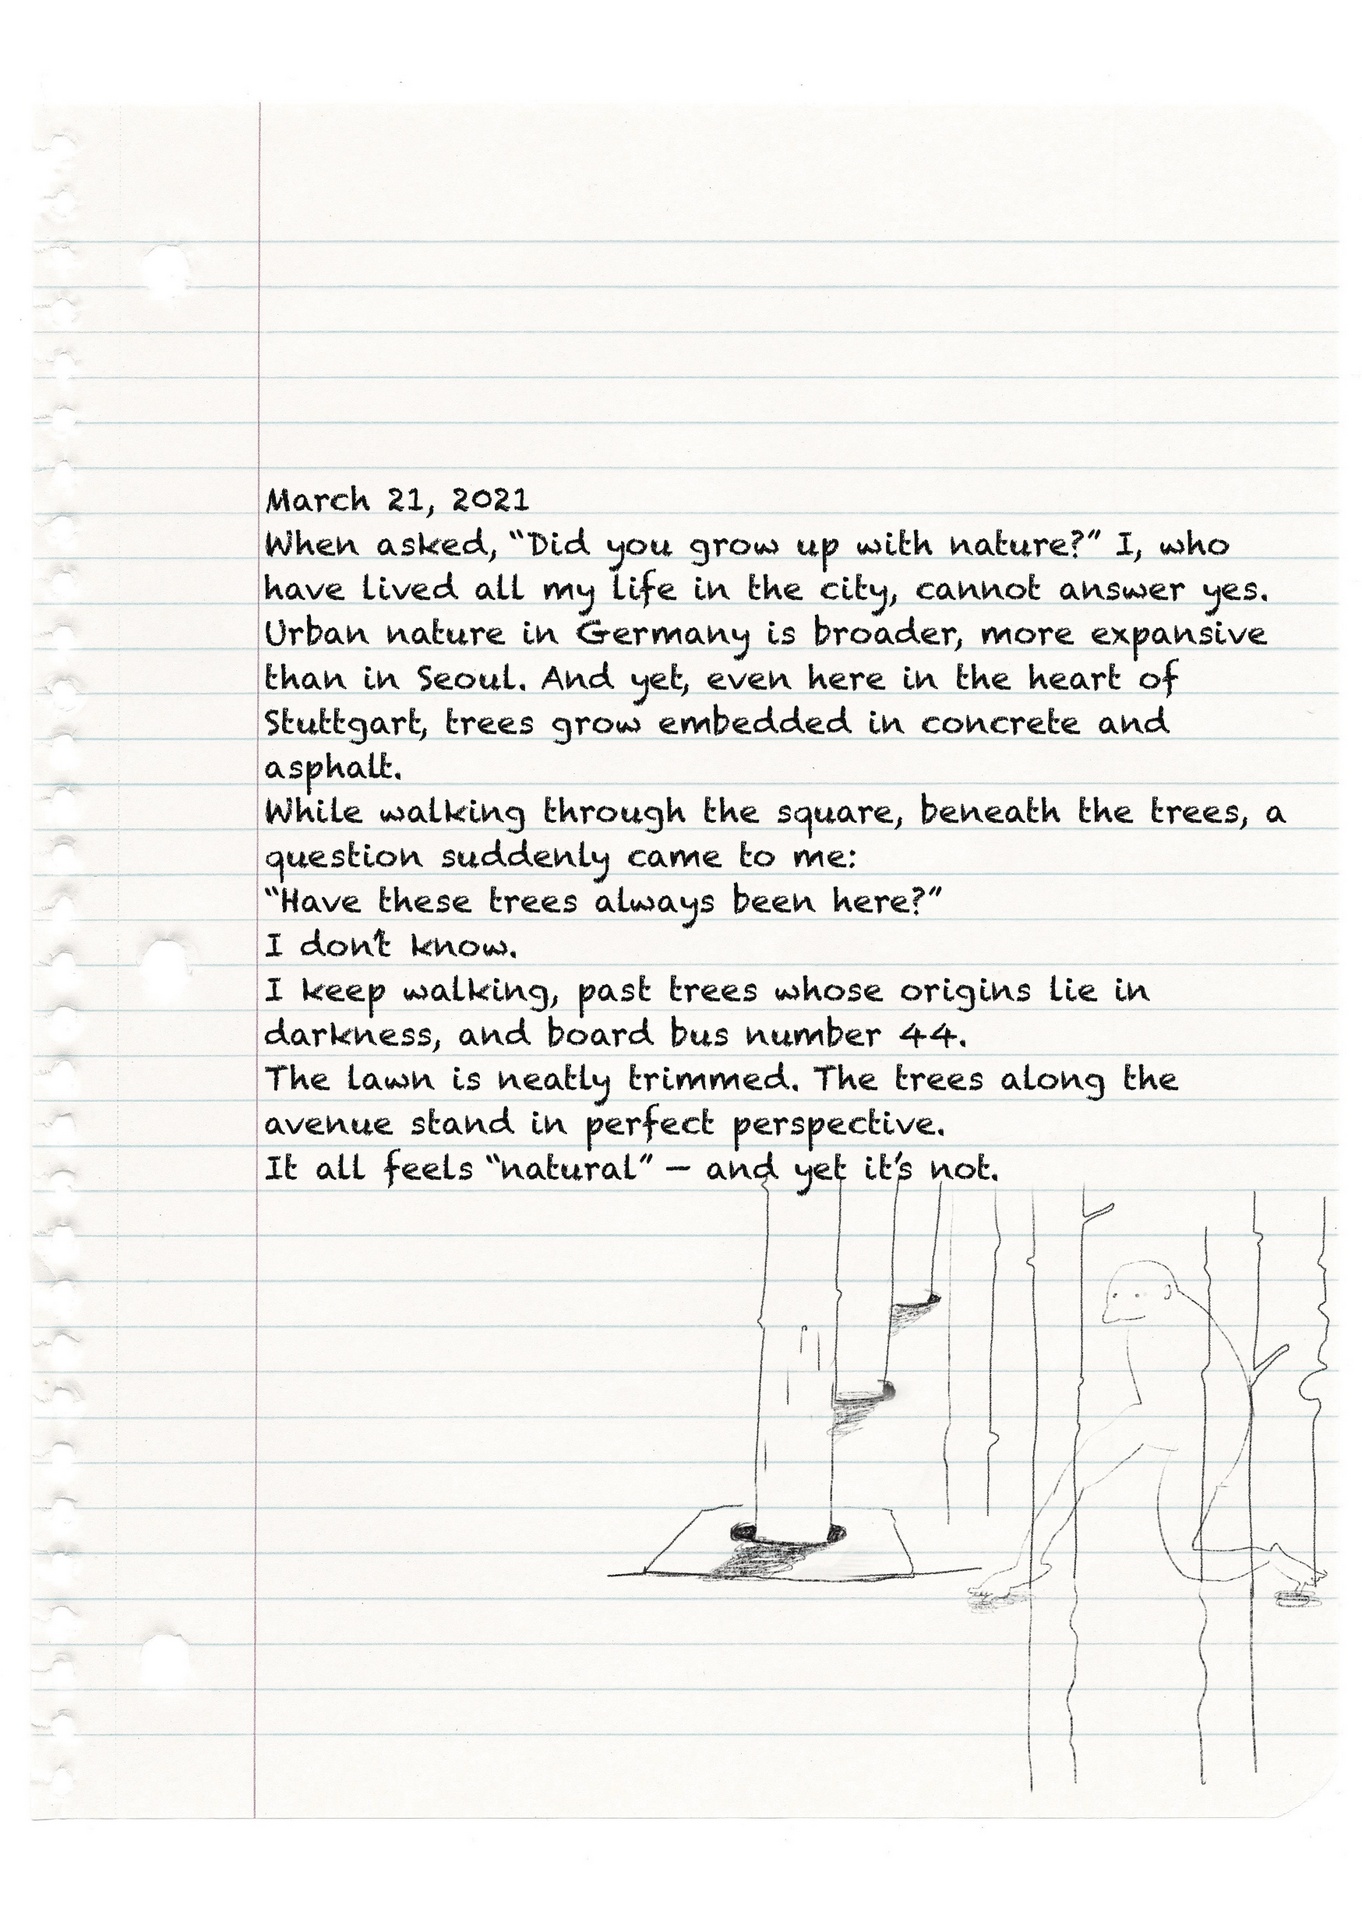 March 21, 2021
When asked, “Did you grow up with nature?” I, who
have lived all my life in the city, cannot answer yes.
Urban nature in Germany is broader, more expansive
than in Seoul. And yet, even here in the heart of
Stuttgart, trees grow embedded in concrete and
asphalt.
While walking through the square, beneath the trees, a
question suddenly came to me:
“Have these trees always been here?”
I don’t know.
I keep walking, past trees whose origins lie in
darkness, and board bus number 44.
The lawn is neatly trimmed. The trees along the
avenue stand in perfect perspective.
It all feels “natural” – and yet it’s not.